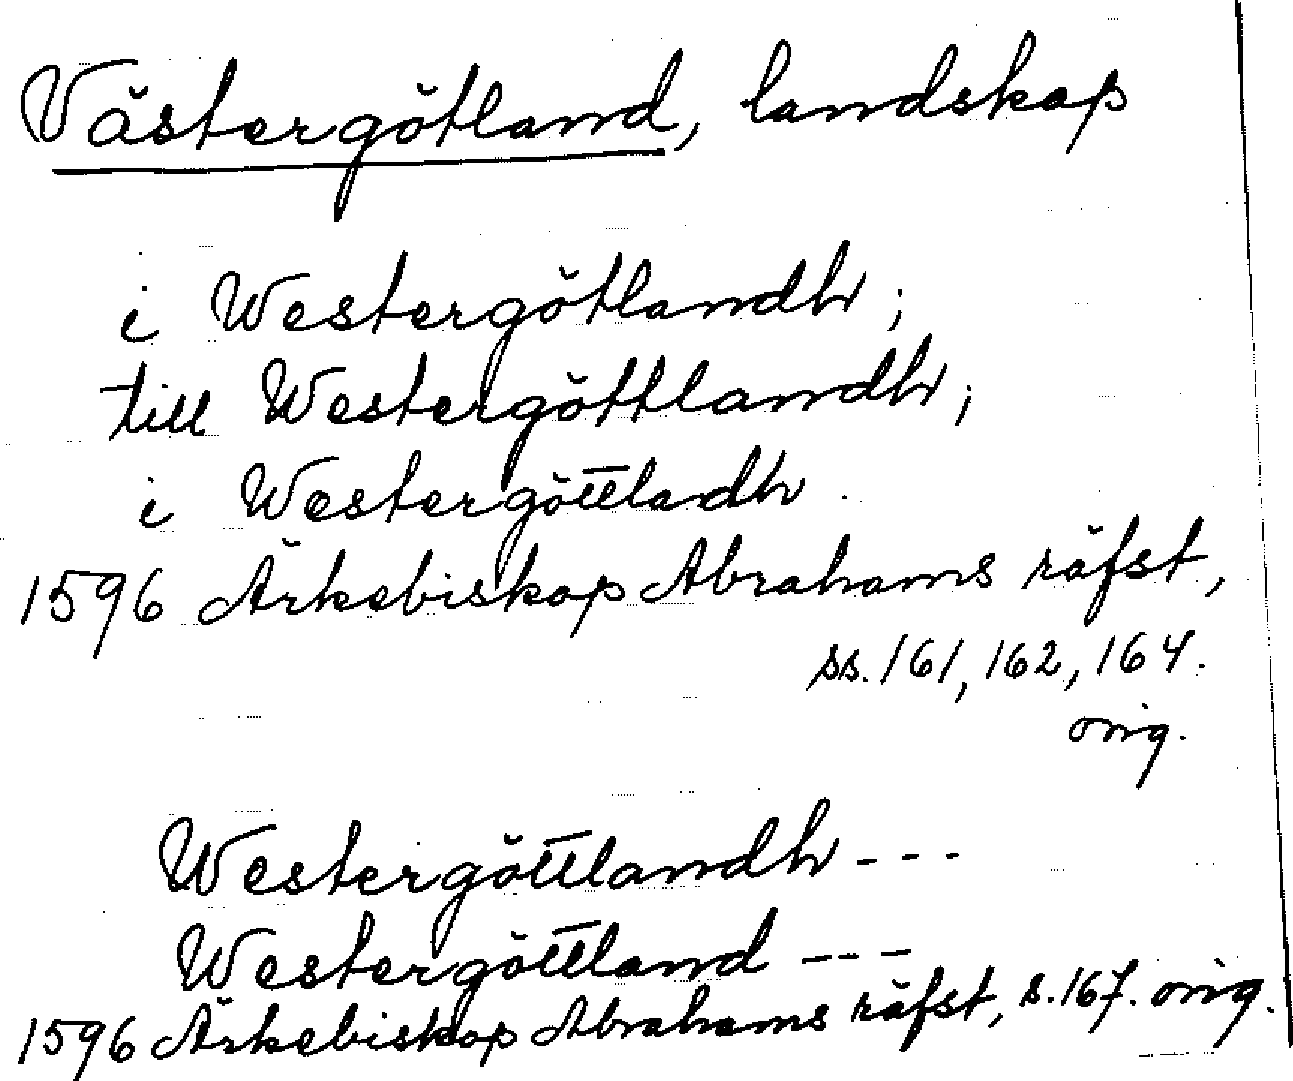 Västergötland, landskap
i Westergötlandh;
till Westergöttlandh;
i Westergöttladh.
1596 Ärkebiskop Abrahams räfst,
ss. 161, 162, 164.
orig.
Westergöttlandh - - -
Westergöttland - - -
1596 Ärkebiskop Abrahams räfst, s. 167. orig.